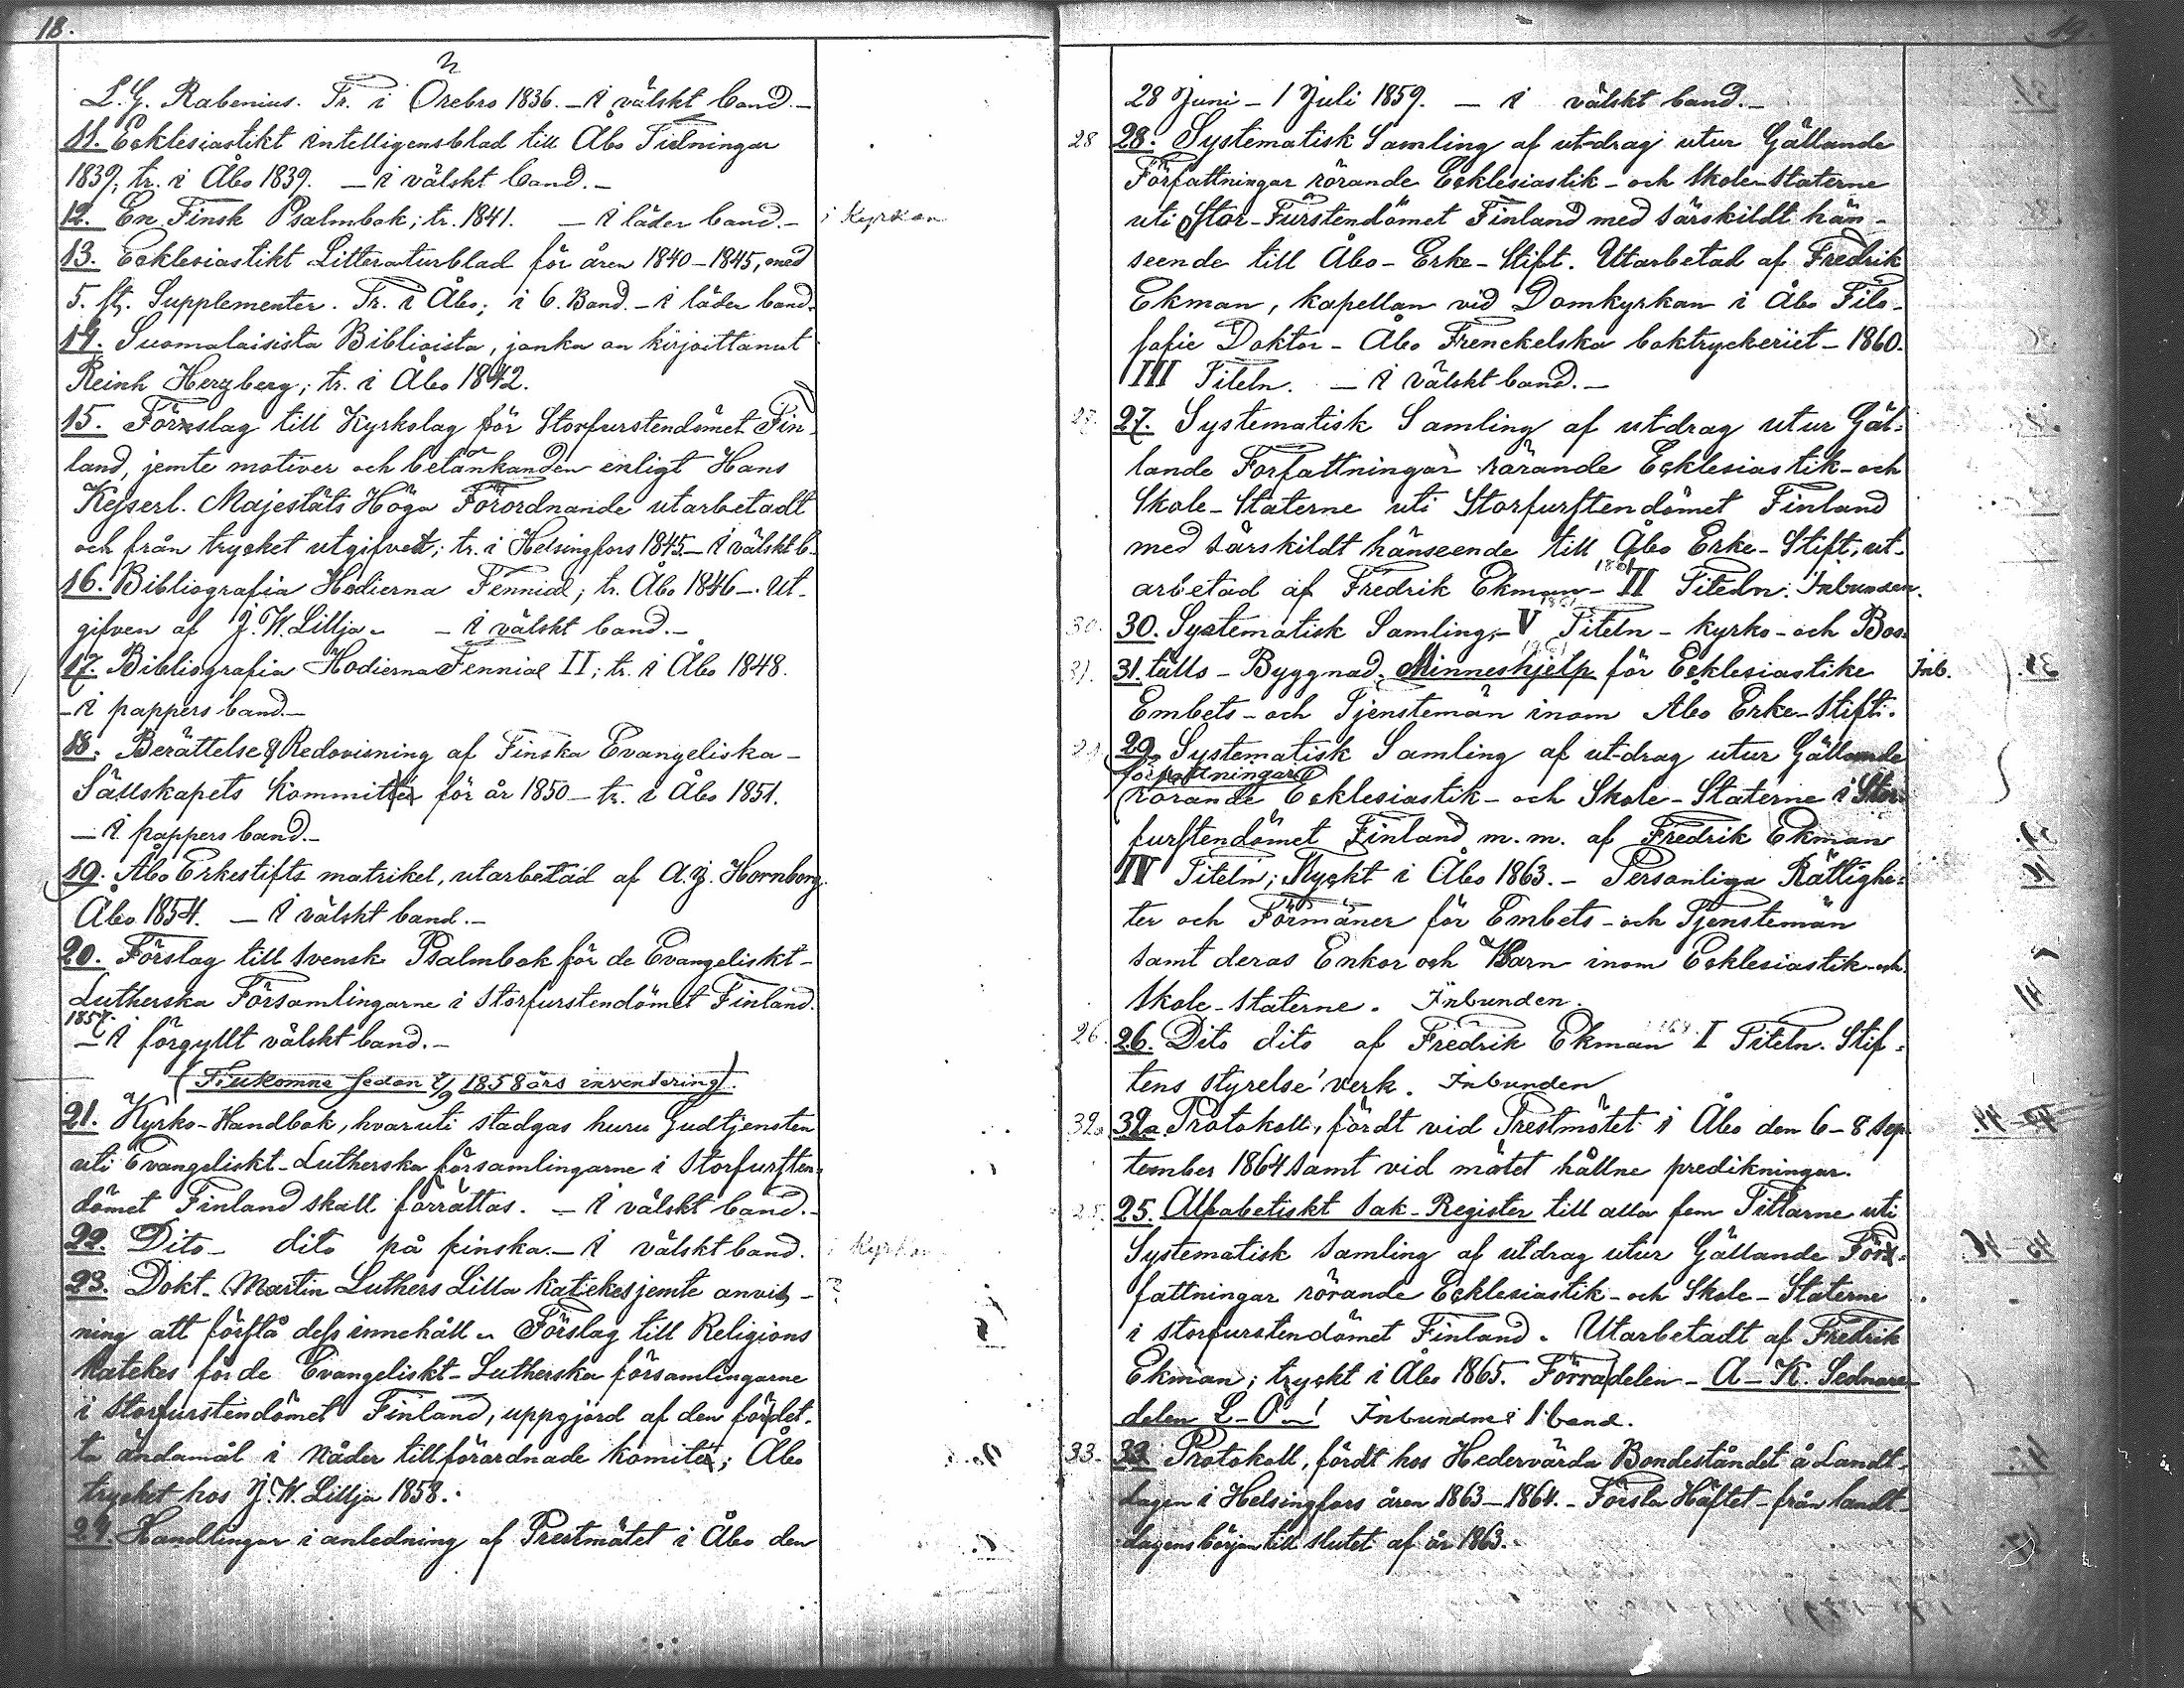 18.
L. G. Rabenius. Tr. i Örebro 1836. – i välskt band. –
11. Ecklesiastikt intelligensblad till Åbo Tidningar
1839; tr. i Åbo 1839. – i välskt band. –
12. En Finsk Psalmbok; tr. 1841. – i läder band. – i Kyrkan
13. Ecklesiastikt Litteraturblad för åren 1840–1845, med
5. st. Supplementer. Tr. i Åbo; i 6. Band. – i läder band.
14. Suomalaisista Biblioista, jonka on kirjoittanut
Reinh Herzberg; tr. i Åbo 1842.
15. Förslag till Kyrkolag för Storfurstendömet Fin-
land, jemte motiver och betänkanden enligt Hans
Kejserl. Majestäts Höga Förordnande utarbetadt
och från trycket utgifvet; tr. i Helsingfors 1845 – i välskt b.
16. Bibliografia Hodierna Fenniæ; tr. Åbo 1846 –. Ut-
gifven af J. W. Lillja. – i välskt band. –
17. Bibliografia Hodierna Fenniæ II; tr. i Åbo 1848.
– i pappers band. –
18. Berättelse & Redovisning af Finska Evangeliska –
Sällskapets Kommitté för år 1850 – tr. i Åbo 1851.
– i pappers band. –
19. Åbo Erkestifts matrikel, utarbetad af A. J. Hornborg.
Åbo 1854. – i välskt band. –
20. Förslag till svensk Psalmbok för de Evangeliskt-
Lutherska Församlingarne i Storfurstendömet Finland.
1857.
– i förgyllt välskt band. –
(Tillkomne sedan 1858 års inventering).
21. Kyrko-Handbok, hvaruti stadgas huru Gudtjensten
uti Evangeliskt-Lutherska församlingarne i Storfursten=
dömet Finland skall förrättas. – i välskt band. –
22. Dito – dito på finska. – i välskt band. i Kyrkan
23. Dokt. Martin Luthers Lilla katekes jemte anvis-
ning att förstå dess innehåll. Förslag till Religions
katekes för de Evangeliskt-Lutherska församlingarne
i storfurstendömet Finland, uppgjord af den för det-
ta ändamål i nåder tillförordnade komité; Åbo
trycket hos J. W. Lillja 1858.
24. Handlingar i anledning af Prestmötet i Åbo den
19.
28 Juni – 1 Juli 1859. – i välskt band. –
28 28. Systematisk Samling af utdrag utur Gällande
Författningar rörande Ecklesiastik- och Skole-Staterne
uti Stor-Furstendömet Finland med särskildt hän-
seende till Åbo-Erke-Stift. Utarbetad af Fredrik
Ekman, kapellan vid Domkyrkan i Åbo Filo-
sofie Doktor – Åbo Frenckelska boktryckeriet – 1860.
III Titeln. – i välskt band. –
27. 27. Systematisk Samling af utdrag utur Gäl-
lande Författningar rörande Ecklesiastik- och
Skole-Staterne uti Storfurstendömet Finland
med särskildt hänseende till Åbo Erke-Stift, ut-
arbetad af Fredrik Ekman – 1861 II Titeln. Inbunden.
30. 30. Systematisk Samling, – V Titeln – kyrko- och Bos-
31. 31. tälls-Byggnad. Minneshjelp för Ecklesiastike Inb.
Embets- och Tjenstemän inom Åbo Erke-Stift.
29. Systematisk Samling af utdrag utur Gällande
författningar
rörande Ecklesiastik- och Skole-Staterne i Stor-
furstendömet Finland m.m. af Fredrik Ekman
IV Titeln; Tryckt i Åbo 1863. – Personliga Rättighe-
ter och Förmåner för Embets- och Tjenstemän
samt deras Enkor och Barn inom Ecklesiastik- och
Skole-Staterne. Inbunden.
26. 26. Dito dito af Fredrik Ekman I Titeln. Stif-
tens styrelse verk. Inbunden
32. 32. Protokoll, fördt vid Prestmötet i Åbo den 6–8 Sep-
tember 1864 samt vid mötet hållne predikningar.
25. 25. Alfabetiskt Sak-Register till alla fem Titlarne uti
Systematisk samling af utdrag utur Gällande För-
fattningar rörande Ecklesiastik- och Skole-Staterne
i storfurstendömet Finland. Utarbetadt af Fredrik
Ekman; tryckt i Åbo 1865. Förra delen – A–K. Sednare
delen L–Ö. Inbundne i 1 band.
33. 33 Protokoll, fördt hos Hedervärda Bondeståndet å Landt-
dagen i Helsingfors åren 1863–1864. – Första Häftet – från landt-
dagens början till slutet af år 1863.